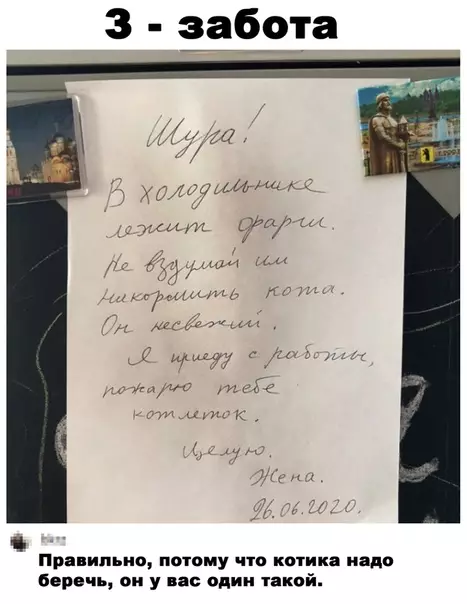 З - забота
Шура!
В холодильнике
лежит фарш.
Не вздумай им
накормить кота.
Он несвежий.
Я приеду с работы,
пожарю тебе
котлеток.
Целую.
Жена.
26.06.2020.
Правильно, потому что котика надо
беречь, он у вас один такой.